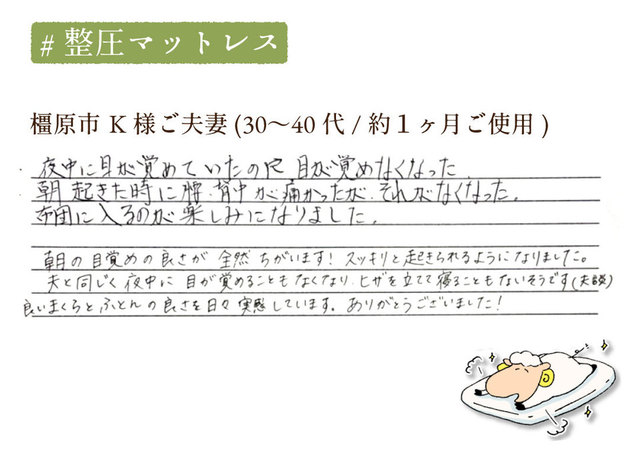 #整圧マットレス
橿原市 K 様ご夫妻 (30〜40 代 / 約１ヶ月ご使用 )
・夜中に目が覚めていたのが目が覚めなくなった
・朝起きた時に腰、背中が痛かったが、それがなくなった。
布団に入るのが楽しみになりました。
朝の目覚めの良さが全然ちがいます！スッキリと起きられるようになりました。
夫と同じく夜中に目が覚めることもなくなり、ヒザを立てて寝ることもないそうです(夫談)
良いまくらとふとんの良さを日々実感しています。ありがとうございました！